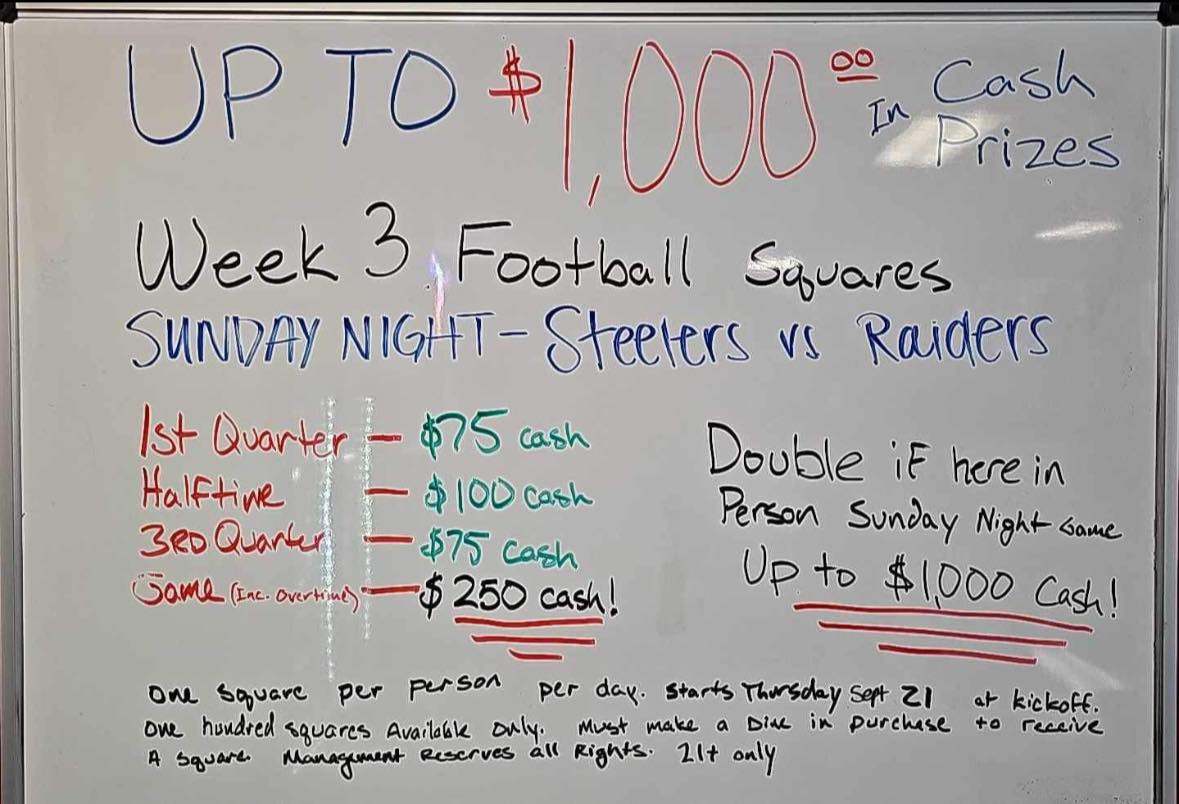 UP TO $1,000 00 In Cash Prizes
Week 3 Football Squares
SUNDAY NIGHT - Steelers vs Raiders
1st Quarter — $75 cash
Halftime — $100 cash
3RD Quarter — $75 cash
Game (Inc. Overtime) — $250 cash!
Double iF here in
Person Sunday Night Game
Up to $1,000 Cash!
One Square per person per day. Starts Thursday Sept 21 at kickoff.
One hundred squares Available Only. Must make a Dine in purchase to receive
A Square. Management Reserves all Rights. 21+ only